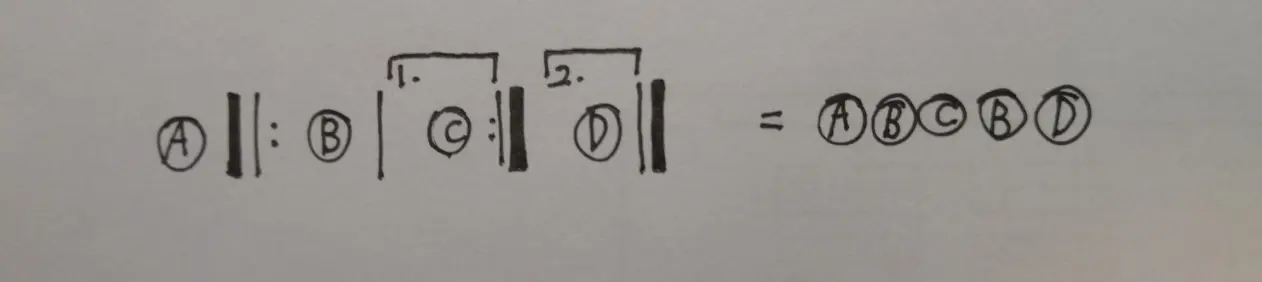 A ‖: B | 1. C :‖ 2. D ‖ = A B C B D